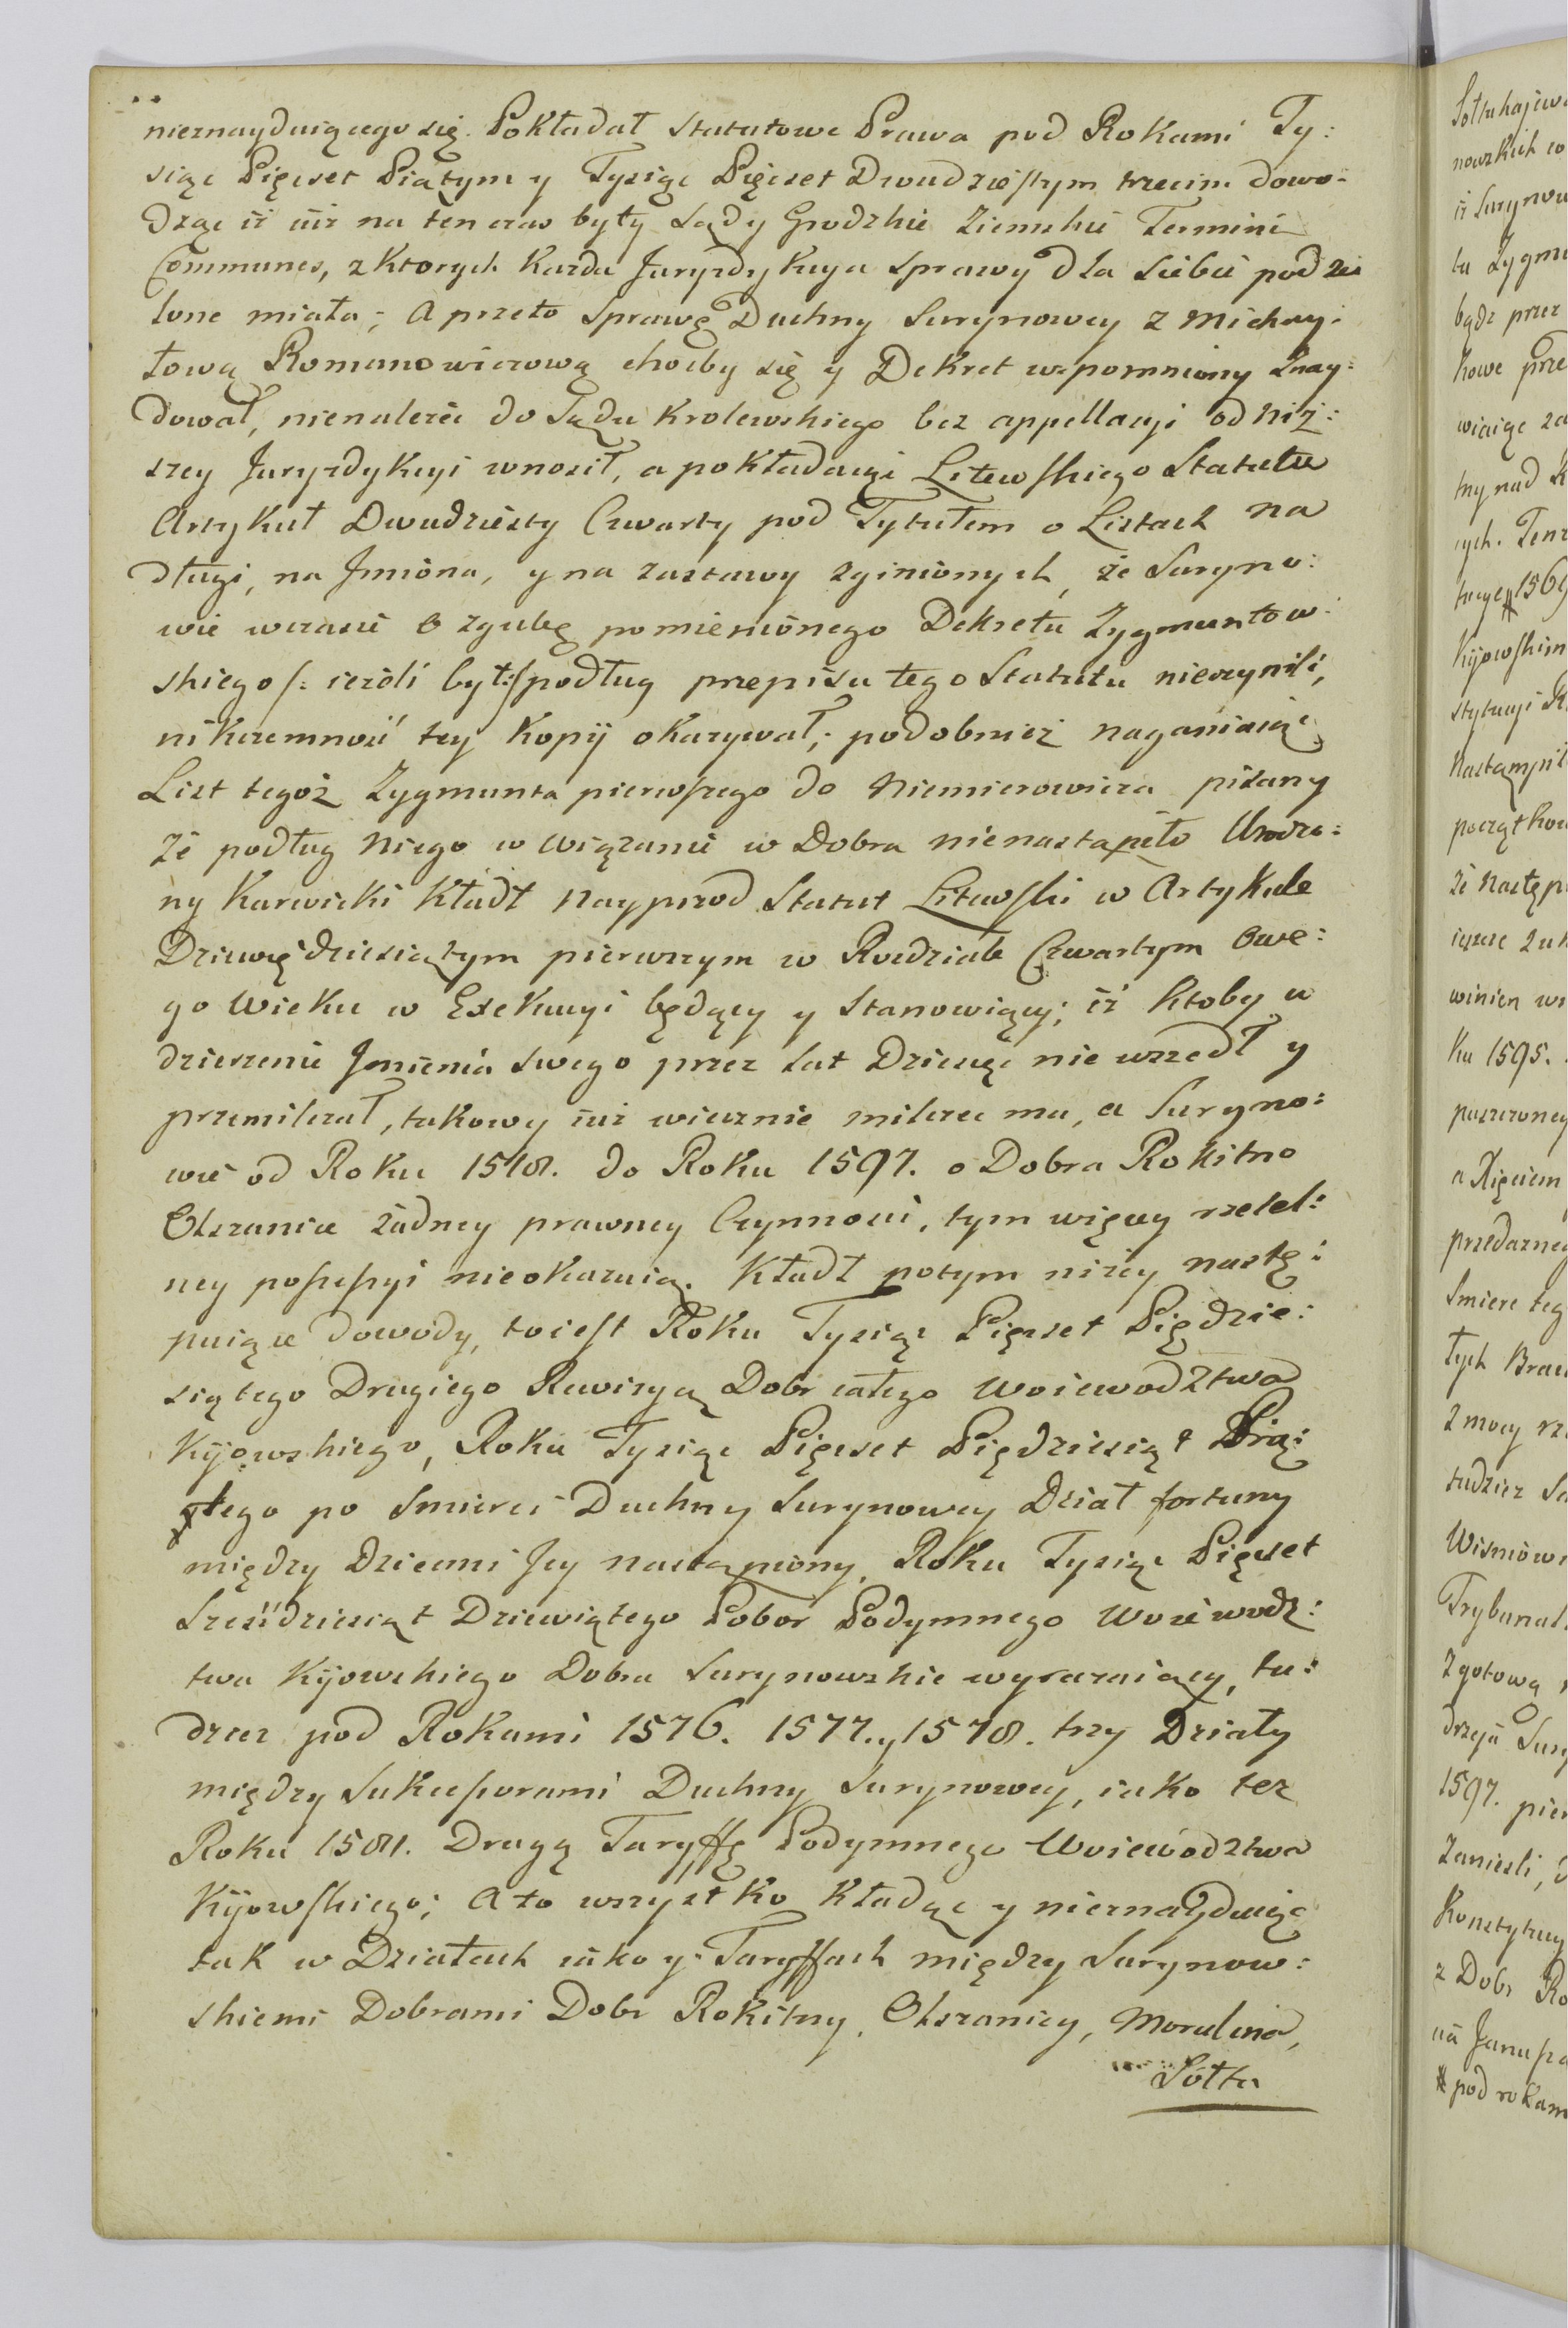 nieznayduiącego się. Pokładał Statutowe Prawa pod Rokami Ty:
siąc Pięcset Piątym y Tysiąc Pięcset Dwudziestym trzecim dowo:
dząc iż iuż na ten czas były Sądy Grodzkie Ziemskie Termini
Communes, z ktorych każda Juryzdykcya sprawy dla siebie podzie
lone miała; a przeto Sprawę Duchny Surynowey z Michay:
łową Romanowiczową choćby się y Dekret wspomniony Znay:
dował, nienależeć do Sądu Krolewskiego bez appellacyi od Niż:
szey Juryzdykcyi wnosił, a pokładaiąc Litewskiego Statutu
Artykuł Dwudziesty Czwarty pod Tytułem o Listach na
długi, na Jmiona, y na zastawy zginionych, że Suryno:
wie wczasie o zgubę pomienionego Dekretu Zygmuntow:
skiego /: ieżeli był :/ podług przepisu tego Statutu nieczynili,
nikczemność tey Kopij okazywał; podobnież naganiaiąc
List tegoż Zygmunta pierwszego do Niemierowicza pisany
Że podług Niego w wiązanie w Dobra nienastąpiło Urodzo:
ny Karwicki kładł Nayprzod Statut Litewski w Artykule
Dziewiędziesiątym pierwszym w Rozdziale Czwartym owe:
go Wieku w Exekucyi będący y Stanowiący; iż Ktoby w
dzierzenie Jmienia swego przez Lat Dziesięć nie wszedł y
przemilczał, takowy iuż wiecznie milczec ma, a Suryno:
wie od Roku 1518. do Roku 1597. o Dobra Rokitno
Olszanice żadney prawney Czynności, tym więcey rzetel:
ney possessyi nieokazuią. Kładł potym niżey nastę:
puiące dowody, toiest Roku Tysiąc Pięcset Piędzie:
siątego Drugiego Rewizyą Dobr całego Woiewodztwa
Kijowskiego, Roku Tysiąc Pięcset Piędziesiąt Pią:
tego po Smierci Duchny Surynowey Dział fortuny
między Dziećmi Jey nastąpiony, Roku Tysiąc Pięcset
Sześćdziesiąt Dziewiątego Pobor Podymnego Woiewodz:
twa Kijowskiego Dobra Surynowskie wyrażaiący, tu:
dziez pod Rokami 1576. 1577. y 1578. trzy Działy
między Sukcessorami Duchny Surynowey, iako tez
Roku 1581. Drugą Taryffę Podymnego Woiewodztwa
Kijowskiego; A to wszystko Kładąc y nieznayduiąc
tak w Działach iako y Taryffach między Surynow:
skiemi Dobrami Dobr Rokitny, Olszanicy, Moralina,
Sołtu